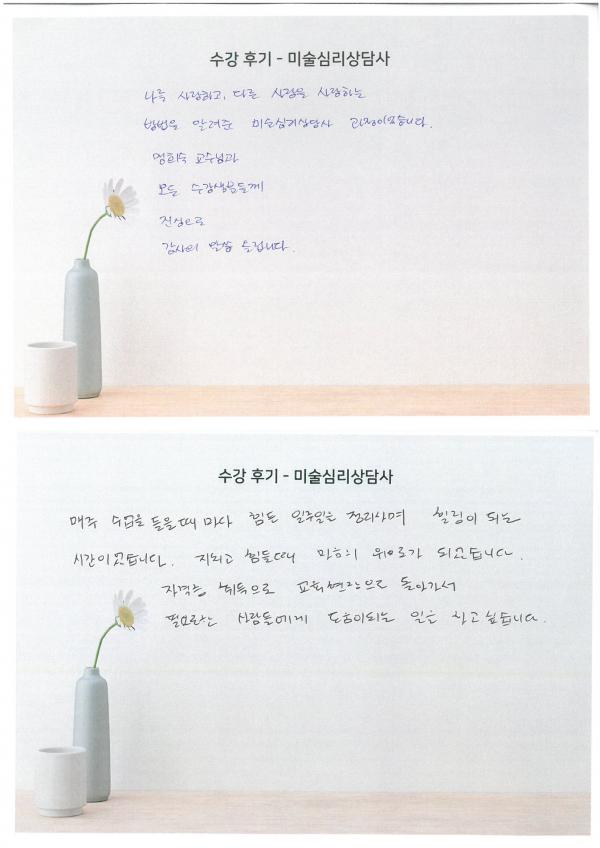 수강 후기 - 미술심리상담사
나를 사랑하고, 다른 사람을 사랑하는
방법을 알려준 미술심리상담사 과정이었습니다.
명희숙 교수님과
모든 수강생분들께
진심으로
감사의 말씀 드립니다.
수강 후기 - 미술심리상담사
매주 수업을 들을때 마다 힘든 일주일을 정리하며 힐링이 되는
시간이었습니다. 지치고 힘들때 마음의 위로가 되었습니다.
자격증 취득으로 교육현장으로 돌아가서
필요하는 사람들에게 도움이되는 일을 하고 싶습니다.